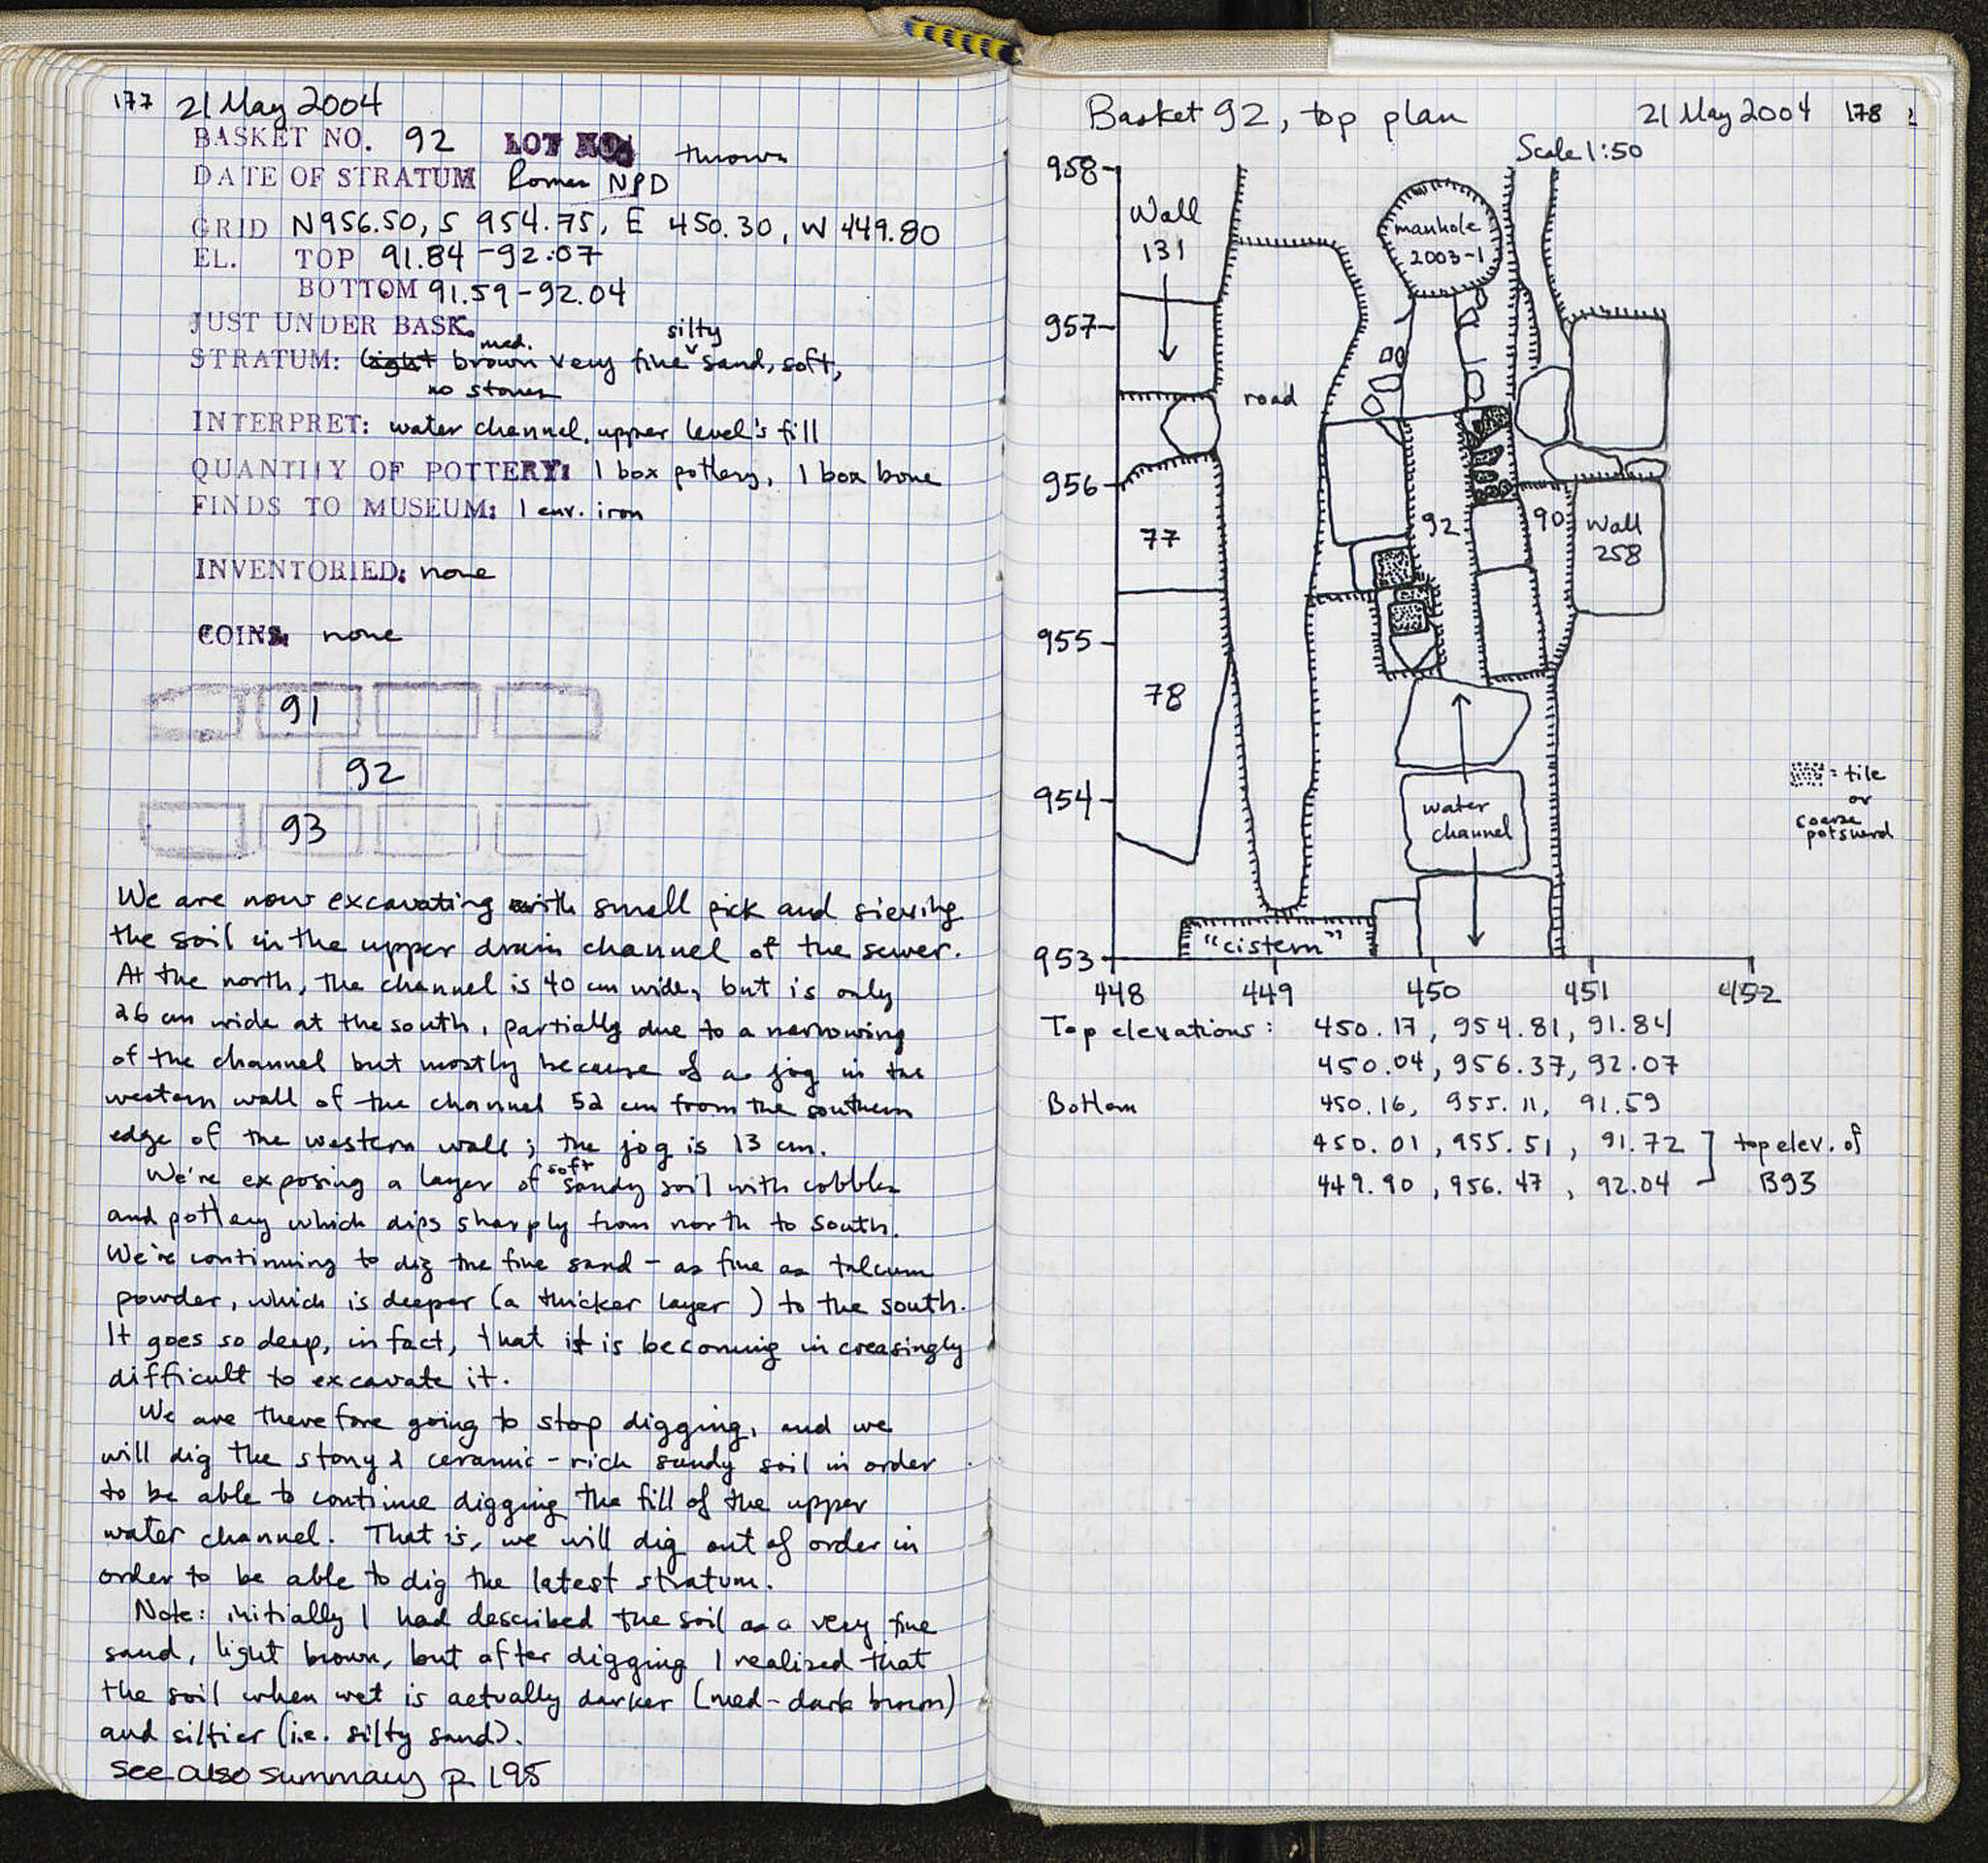 177 21 May 2004
BASKET NO. 92 LOT NO. thrown
DATE OF STRATUM Roman NPD
GRID N956.50, S 954.75, E 450.30, W 449.80
EL. TOP 91.84-92.07
BOTTOM 91.59-92.04
JUST UNDER BASK.
med. silty
STRATUM: light brown very fine sand, soft,
no stones
INTERPRET: water channel, upper level's fill
QUANTITY OF POTTERY: 1 box pottery, 1 box bone
FINDS TO MUSEUM: 1 env. iron
INVENTORIED: none
COINS: none
91
92
93
We are now excavating with small pick and sieving
the soil in the upper drain channel of the sewer.
At the north, the channel is 40 cm wide, but is only
26 cm wide at the south, partially due to a narrowing
of the channel but mostly because of a jog in the
western wall of the channel 52 cm from the southern
edge of the western wall; the jog is 13 cm.
We're exposing a layer of soft sandy soil with cobbles
and pottery which dips sharply from north to south.
We're continuing to dig the fine sand - as fine as talcum
powder, which is deeper (a thicker layer) to the south.
It goes so deep, in fact, that it is becoming increasingly
difficult to excavate it.
We are therefore going to stop digging, and we
will dig the stony & ceramic-rich sandy soil in order
to be able to continue digging the fill of the upper
water channel. That is, we will dig out of order in
order to be able to dig the latest stratum.
Note: initially I had described the soil as a very fine
sand, light brown, but after digging I realized that
the soil when wet is actually darker (med-dark brown)
and siltier (i.e. silty sand).
See also summary p. 195
Basket 92, top plan 21 May 2004 178
Scale 1:50
958
Wall
131
manhole
2003-1
957
road
956
77
92
90
Wall
258
955
78
954
water
channel
= tile
or
coarse
potsherd
"cistern"
953
448 449 450 451 452
Top elevations: 450.17, 954.81, 91.84
450.04, 956.37, 92.07
Bottom 450.16, 955.11, 91.59
450.01, 955.51, 91.72 ] top elev. of
449.90, 956.47, 92.04 B93